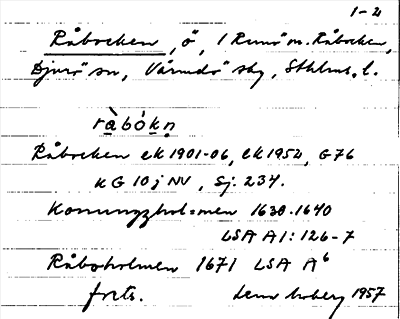 1-2
Råbocken, ö, 1 Runö m. Råbocken,
Djurö sn, Värmdö skg, Sthlms l.
ràbókn
Råbocken ek 1901-06, ek 1952, G76
KG 10j NV, Sj: 234.
Konungzhol=men 1630-1640
LSA A1: 126-7
Råboholmen 1671 LSA A6
forts. Lena Moberg 1957